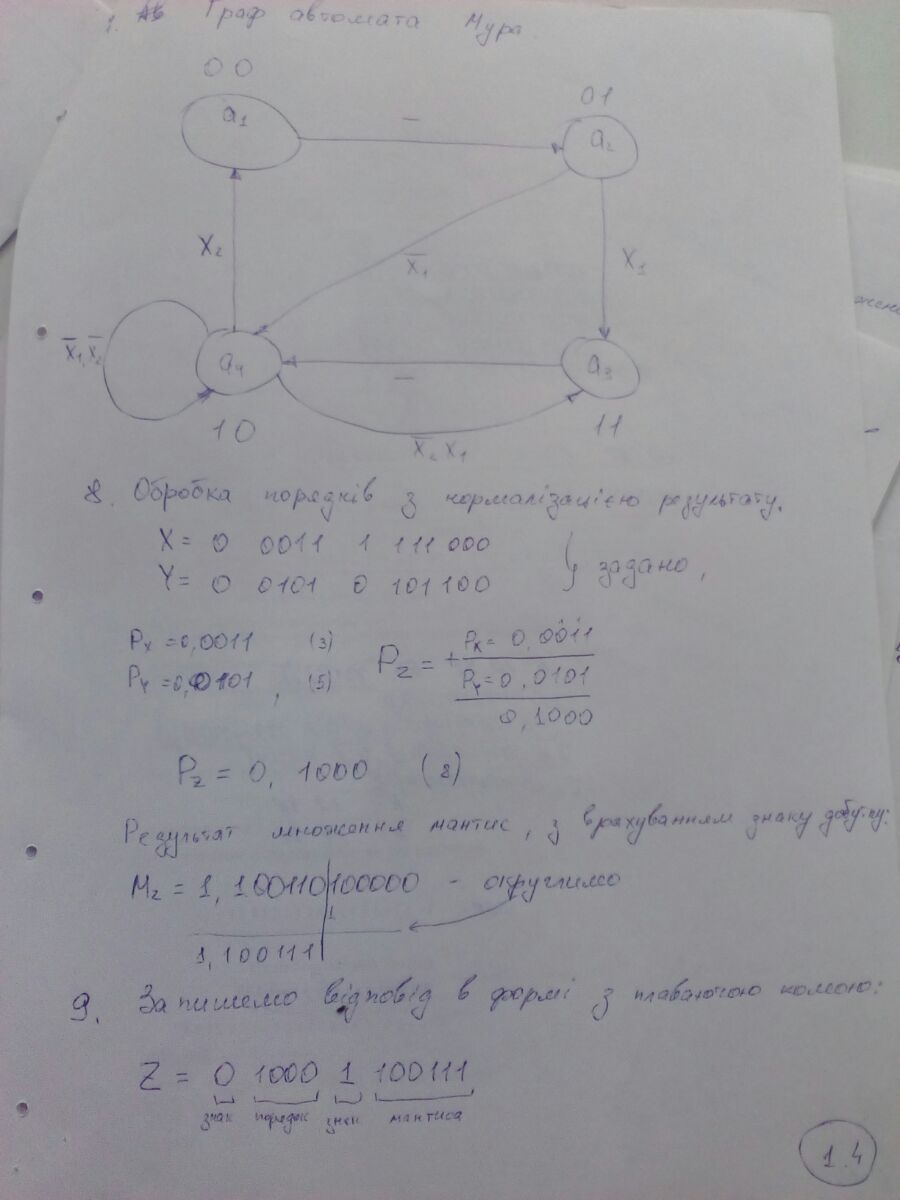 1. Граф автомата Мура.
00
01
a₁
—
a₂
X₂
X̅₁
X₁
X̅₁,X̅₂
a₄
—
a₃
10
X̅₂ X₁
11
8. Обробка порядків з нормалізацією результату.
X = 0 0011 1 111 000
Y = 0 0101 0 101 100
} задано,
Pₓ = 0,0011 (3)
Pᵧ = 0,0101, (5)
P_z = + Pₓ = 0,0011
Pᵧ = 0,0101
0,1000
P_z = 0, 1000 (8)
Результат множення мантис, з врахуванням знаку добутку:
M_z = 1, 100110|100000 - округлимо
1
1,100111
9. Запишемо відповід в формі з плаваючою комою:
Z = 0 1000 1 100111
знак порядок знак мантиса
1.4